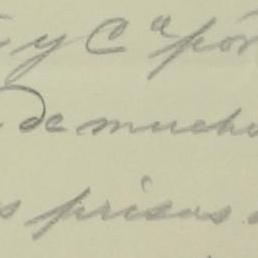 y Cª por
de mucho
s prisas